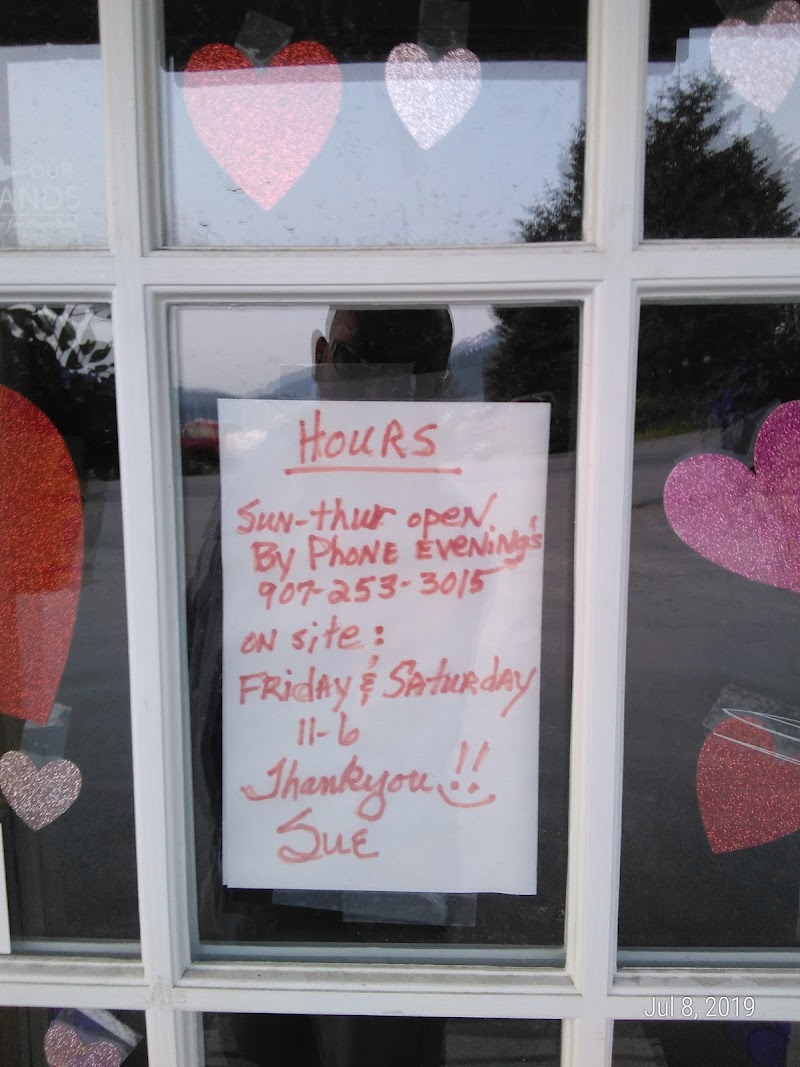 OUR
ANDS
HOURS
Sun-thur open
By Phone Evening's
907-253-3015
on site:
Friday & Saturday
11-6
Thankyou!!
Sue
Jul 8, 2019